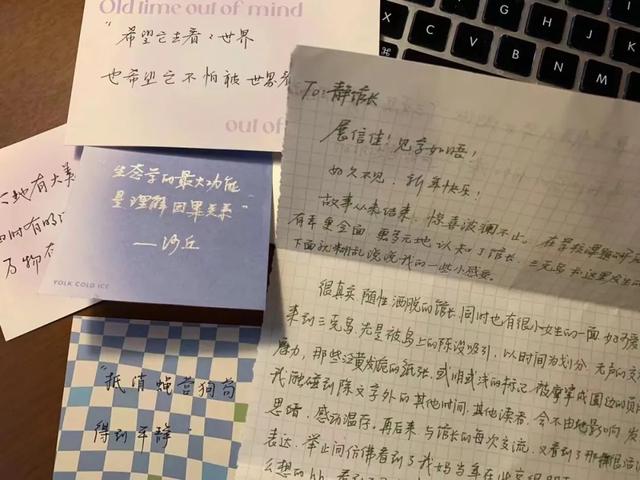 Old time out of mind
"希望它去看看世界
也希望它不怕被世界看
out of
地有大美
四时有明
万物有
"生态学的最大功能
是理解因果关系"
——沙丘
YOLK COLD ICE
"抵消蝇营狗苟
得到平静"
To：静馆长
展信佳！见字如晤！
好久不见，新年快乐！
故事从未结束，惊喜波澜不止。在
有幸更全面、更多元地认知了馆长、三克鸟和这里发生的
下面就糊乱说说我的一些小感受。
很真实、随性洒脱的馆长，同时也有很小女生的一面，
来到三克鸟先是被鸟上的陈设吸引，以时间为划分，无声的
魔力，那些泛黄发脆的纸张，或明或浅的标记，被摩挲成圆边的页
我触碰到除文字外的其他时间，其他读者，会不由地影响、发
思啫，感动温存，再后来与馆长的每次交流，又看到了那
表达，举止间仿佛看到了我妈当年在
么想的hh，看到了